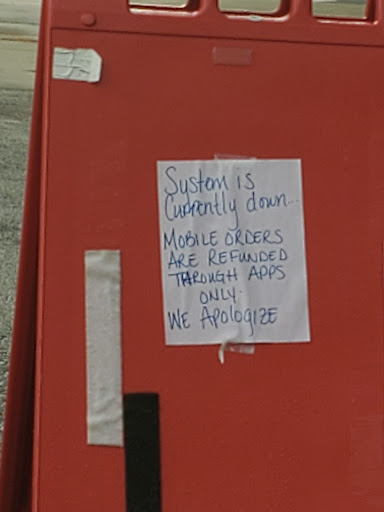 System is
Currently down...
MOBILE ORDERS
ARE REFUNDED
THROUGH APPS
ONLY.
WE APOlOGIZE